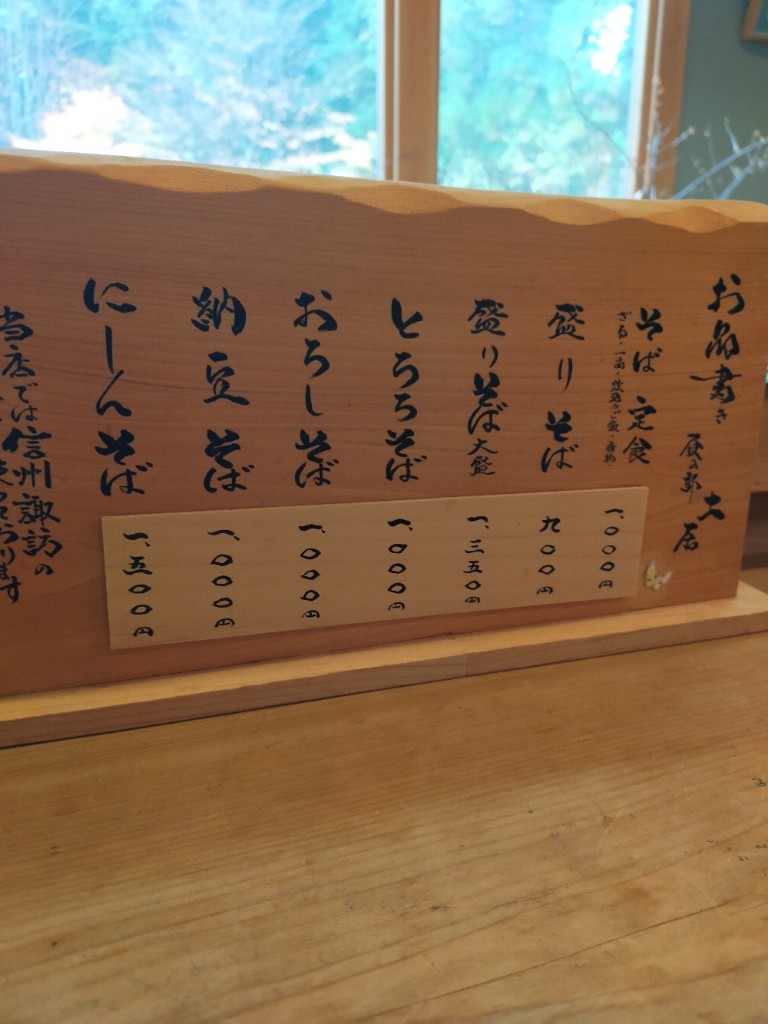 お品書き
土居
そば定食
ざる・一品・炊込みご飯・香物・
盛りそば
盛りそば大盛
とろろそば
おろしそば
納豆そば
にしんそば
当店では信州諏訪の
一、〇〇〇円
九〇〇円
一、三五〇円
一、〇〇〇円
一、〇〇〇円
一、〇〇〇円
一、五〇〇円